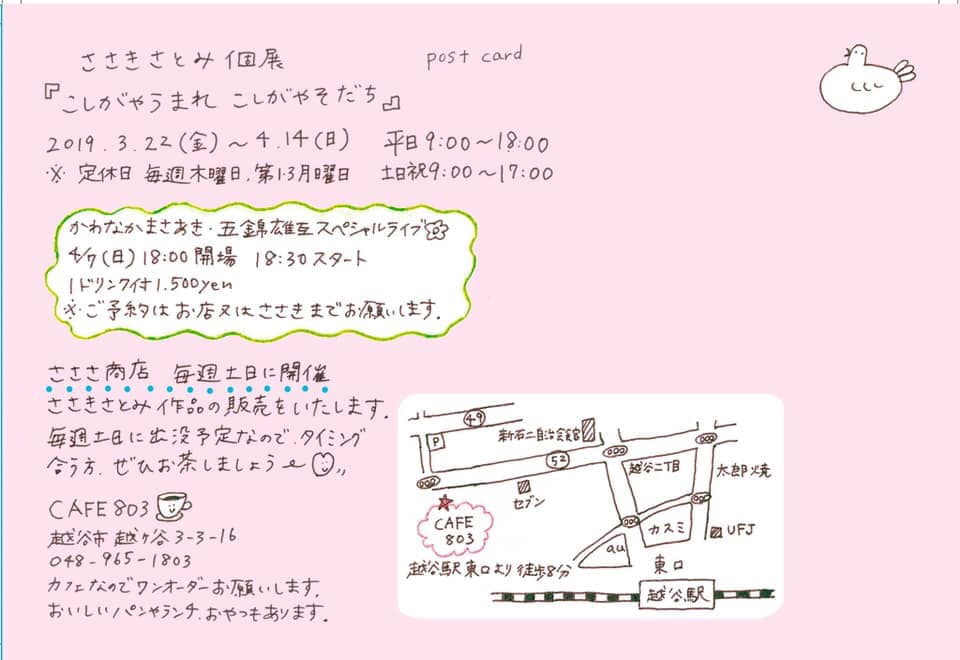 ささきさとみ 個展
post card
『こしがやうまれ こしがやそだち』
2019.3.22(金)～4.14(日) 平日9:00～18:00
※ 定休日 毎週木曜日、第1・3月曜日 土日祝9:00～17:00
かわなかまさあき・五錦雄互スペシャルライブ
4/7(日)18:00開場 18:30スタート
1ドリンク付1.500yen
※ご予約はお店又はささきまでお願いします.
ささき商店 毎週土日に開催
ささきさとみ作品の販売をいたします.
毎週土日に出没予定なので、タイミング
合う方、ぜひお茶しましょう
CAFE 803
越谷市 越ヶ谷 3-3-16
048-965-1803
カフェなのでワンオーダーお願いします.
おいしいパンやランチ、おやつもあります.
49
P
新石二自治会館
52
越谷二丁目
太郎焼
セブン
CAFE
803
カスミ
UFJ
au
越谷駅東口より徒歩8分
東口
越谷駅